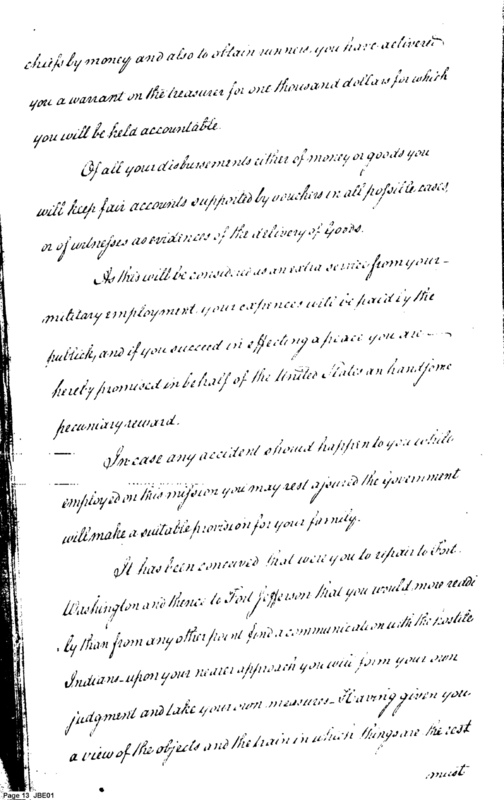 chiefs by money and also to obtain runners, you have delivered
you a warrant on the treasurer for one thousand dollars for which
you will be held accountable.
Of all your disbursements either of money or goods you
will keep fair accounts supported by vouchers in all possible cases,
or of witnesses as evidences of the delivery of Goods.
As this will be considered as an extra service from your
military employment, your expences will be paid by the
publick, and if you succeed in effecting a peace you are
hereby promised in behalf of the United States an handsome
pecuniary reward.
In case any accident should happen to you while
employed on this mission you may rest assured the Government
will make a suitable provision for your family.
It has been conceived that were you to repair to Fort
Washington and thence to Fort Jefferson that you would more readi
ly than from any other point find a communication with the hostile
Indians - upon your nearer approach you will form your own
judgment and take your own measures - Having given you
a view of the objects and the train in which things are the rest
must
Page 13 JBE01